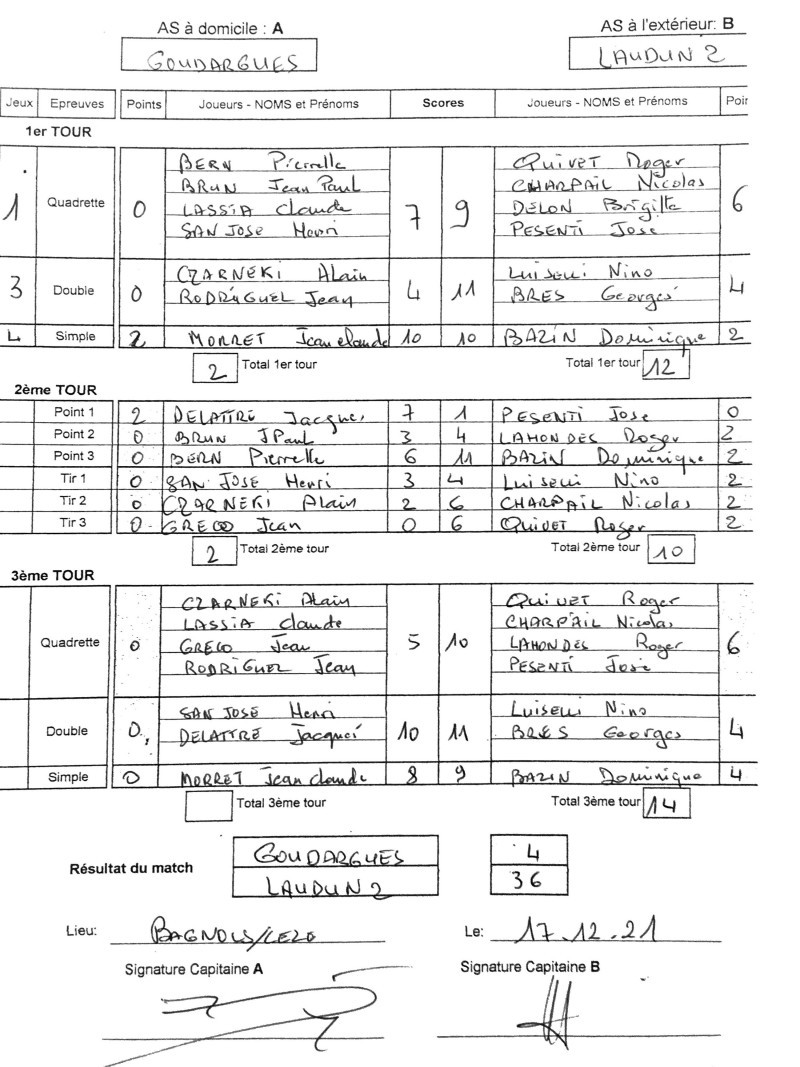 AS à domicile : A AS à l'extérieur: B
GOUDARGUES LAUDUN 2
Jeux Epreuves Points Joueurs - NOMS et Prénoms Scores Joueurs - NOMS et Prénoms Poin
1er TOUR
BERN Pierrelle QUIVET Roger
BRUN Jean Paul CHARPAIL Nicolas
1 Quadrette 0 LASSIA Claude 7 9 DELON Brigitte 6
SAN JOSE Henri PESENTI Jose
CZARNEKI Alain LuisELLi Nino
3 Double 0 RODRIGUEL Jean 4 11 BRES Georges 4
4 Simple 2 MORRET Jean claude 10 10 BAZIN Dominique 2
2 Total 1er tour Total 1er tour 12
2ème TOUR
Point 1 2 DELATTRE Jacques 7 1 PESENTI Jose 0
Point 2 0 BRUN J Paul 3 4 LAHONDES Roger 2
Point 3 0 BERN Pierrelle 6 11 BAZIN Dominique 2
Tir 1 0 SAN JOSE Henri 3 4 LuisELLi Nino 2
Tir 2 0 CZARNEKI Alain 2 6 CHARPAIL Nicolas 2
Tir 3 0 GRECO Jean 0 6 QUIVET Roger 2
2 Total 2ème tour Total 2ème tour 10
3ème TOUR
CZARNEKI Alain QUIVET Roger
LASSIA Claude CHARPAIL Nicolas
Quadrette 0 GRECO Jean 5 10 LAHONDES Roger 6
RODRIGUEL Jean PESENTI Jose
SAN JOSE Henri LuisELLi Nino
Double 0 DELATTRE Jacques 10 11 BRES Georges 4
Simple 0 MORRET Jean claude 8 9 BAZIN Dominique 4
Total 3ème tour Total 3ème tour 14
Résultat du match GOUDARGUES 4
LAUDUN 2 36
Lieu: BAGNOLS/CEZE Le: 17.12.21
Signature Capitaine A Signature Capitaine B